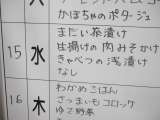 かぼちゃのポタージュ
15 水 まだい茶漬け
仕揚げの肉みそかけ
きゃべつの浅漬け
なし
16 木 わかめごはん
さつまいもコロッケ
ゆで野菜